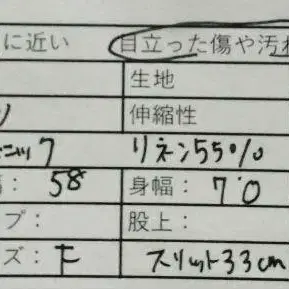 に近い 目立った傷や汚れ
生地
伸縮性
ニック リネン55%
: 58 身幅: 70
プ: 股上:
ズ: F スリット33cm